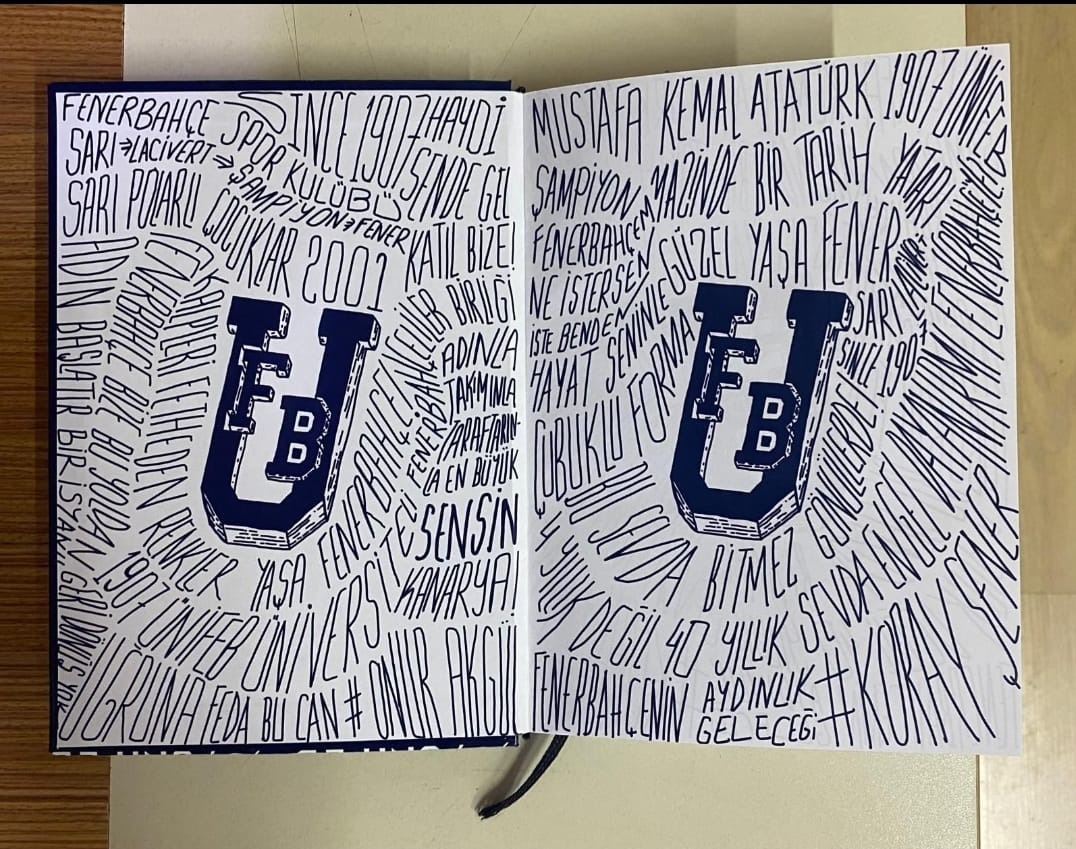 FENERBAHÇE
SPOR KULÜBÜ
SINCE 1907
HAYDİ
SENDE GEL
KATIL BİZE!
SARI → LACİVERT → ŞAMPİYON → FENER
SARI POLARLI ÇOCUKLAR 2001
ADIN BAŞLATIR BİR İSYAN GERİ DÖNÜŞ YOK
FENERBAHÇE BU YOLDAN
KALPLERİ FETHEDEN RENKLER
YAŞA FENERBAHÇE
1907 ÜNİFEB ÜNİVERSİTELİ
FENERBAHÇELİLER BİRLİĞİ
ADINLA
TAKIMINLA
TARAFTARIN-
LA EN BÜYÜK
SENSİN
KANARYA!
UĞRUNA FEDA BU CAN # ONUR AKGÜL
U
F
B
MUSTAFA KEMAL ATATÜRK 1907 ÜNİFEB
ŞAMPİYON
MAZİNDE BİR TARİH YATAR!
FENERBAHÇEM
NE İSTERSEN
İSTE BENDEN
GÜZEL YAŞA FENER
HAYAT SENİNLE
SARI
SINCE 1907
ÇUBUKLU FORMA
BU SEVDA BİTMEZ
U
F
B
4 YILLIK DEĞİL 40 YILLIK SEVDA
FENERBAHÇENİN AYDINLIK
GELECEĞİ
#KORAY ŞENER